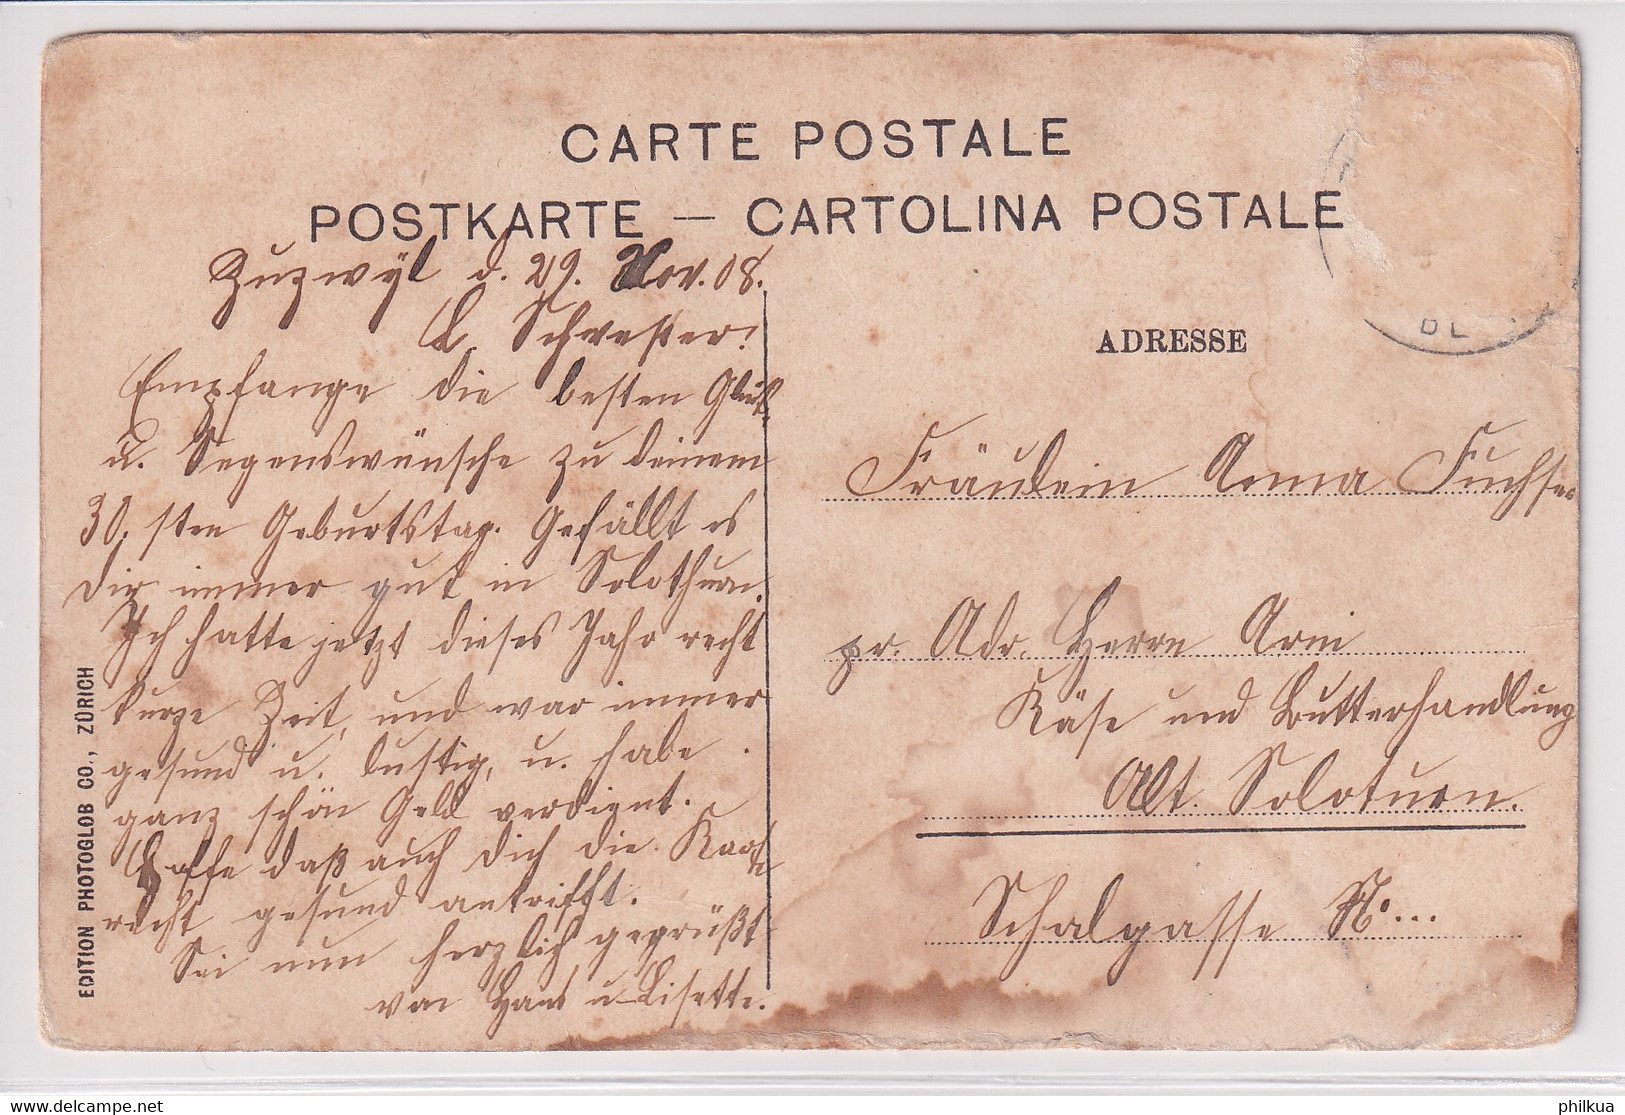 CARTE POSTALE
POSTKARTE — CARTOLINA POSTALE
Zuzwyl d. 29. Nov. 08.
L. Schwester!
Empfange die besten Glück
u. Segenswünsche zu deinem
30.sten Geburtstag. Gefällt es
Dir immer gut in Solothurn.
Ich hatte jetzt dieses Jahr recht
kurze Zeit, und war immer
gesund u. lustig, u. habe
ganz schön Geld verdient.
Hoffe daß auch dich die Karte
recht gesund antrifft.
Sei nun herzlich gegrüßt
von Hans u Lisette.
EDITION PHOTOGLOB CO., ZÜRICH
ADRESSE
Fräulein Anna Fuchser
pr. Adr. Herrn Arni
Käse und Butterhandlung
Alt. Soloturn.
Schalgasse No...
philkua
www.delcampe.net